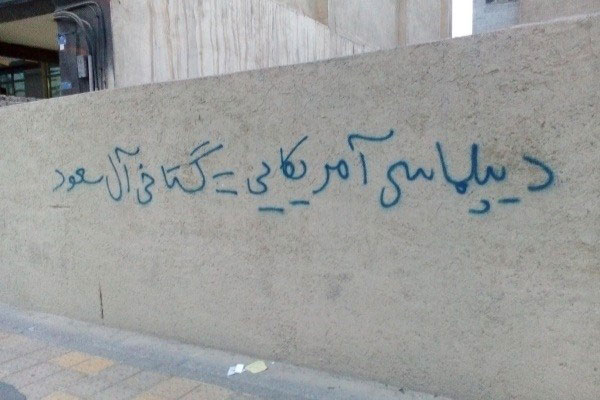 دیپلماسی آمریکایی = گستاخی آل سعود